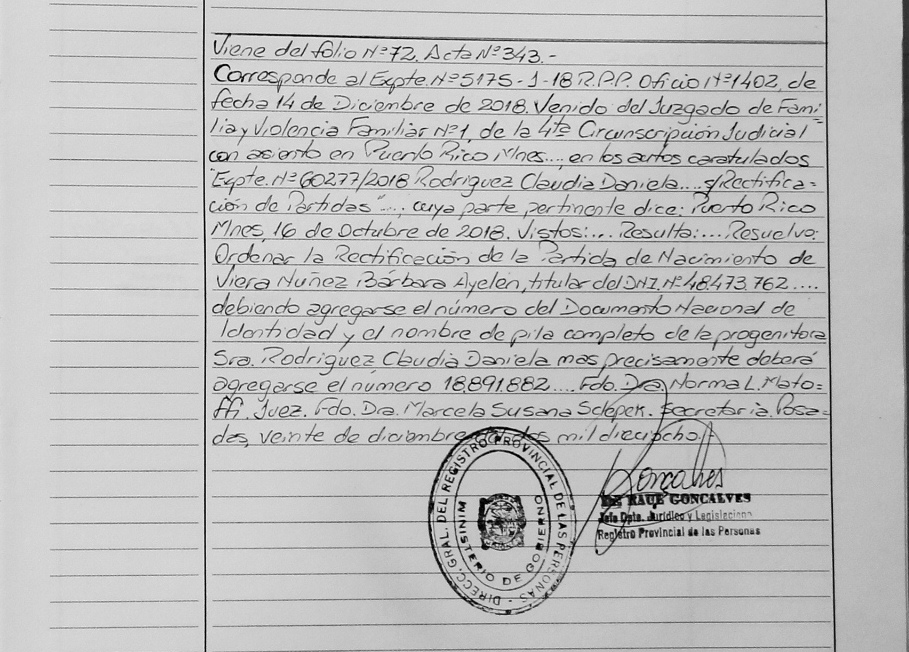 Viene del folio Nº 72. Acta Nº 343.-
Corresponde al Expte. Nº 5175-J-18 R.P.P. Oficio Nº 1402, de
fecha 14 de Diciembre de 2018. Venido del Juzgado de Fami-
lia y Violencia Familiar Nº 1, de la 4ta Circunscripción Judicial
con asiento en Puerto Rico Mnes..., en los autos caratulados
"Expte. Nº 60277/2018 Rodriguez Claudia Daniela.... s/Rectifica=
ción de Partidas"..., cuya parte pertinente dice: Puerto Rico
Mnes, 16 de Octubre de 2018. Vistos:... Resulta:... Resuelvo:
Ordenar la Rectificación de la Partida de Nacimiento de
Viera Nuñez Bárbara Ayelén, titular del DNI. Nº 48.473.762....
debiendo agregarse el número del Documento Nacional de
Identidad y el nombre de pila completo de la progenitora
Sra. Rodriguez Claudia Daniela mas precisamente deberá
agregarse el número 18.891.882.... Fdo. Dra. Norma L. Mato=
ffi. Juez. Fdo. Dra. Marcela Susana Sclepek. Secretaria. Posa-
das, veinte de diciembre del dos mil dieciocho.-
DIRECC. GRAL. DEL REGISTRO PROVINCIAL DE LAS PERSONAS -
MINISTERIO DE GOBIERNO
Goncalves
DE RAUE GONCALVES
Jefe Dpto. Jurídico y Legislacion
Registro Provincial de las Personas